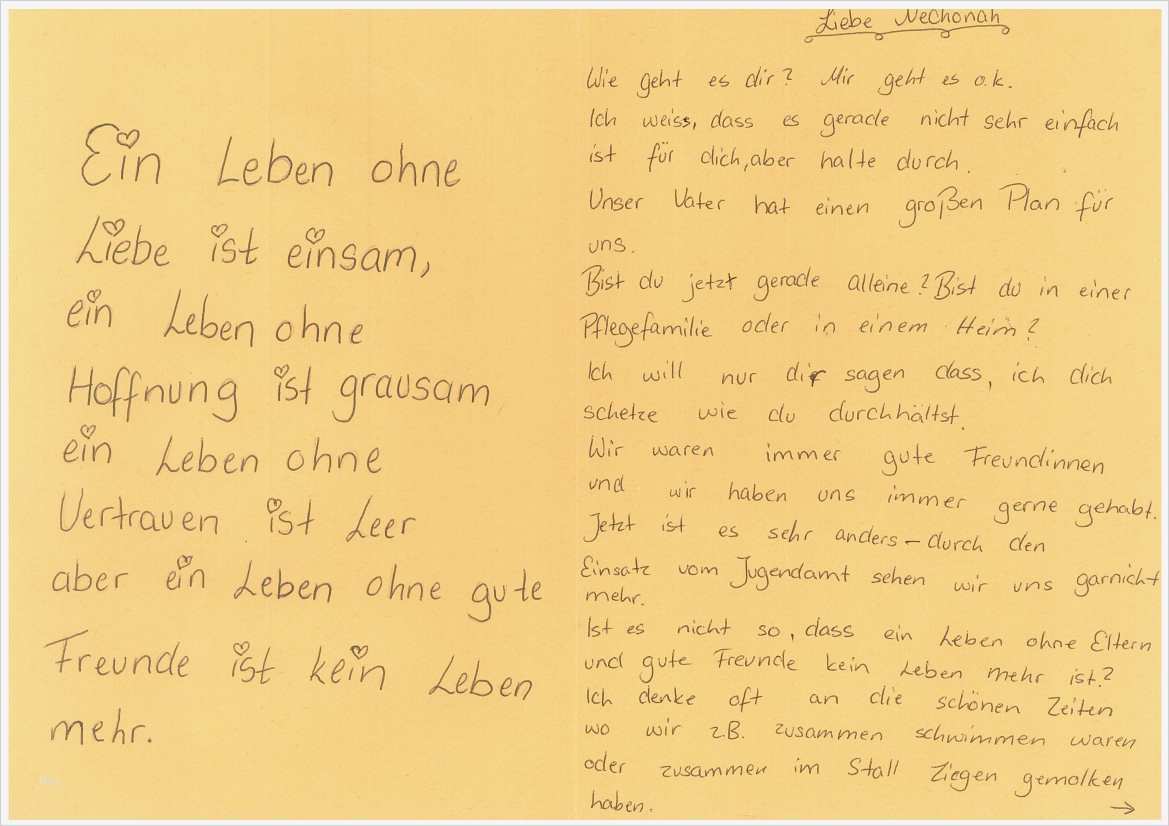 Ein Leben ohne
Liebe ist einsam,
ein Leben ohne
Hoffnung ist grausam
ein Leben ohne
Vertrauen ist Leer
aber ein Leben ohne gute
Freunde ist kein Leben
mehr.
Liebe Nechonah
Wie geht es dir? Mir geht es o.k.
Ich weiss, dass es gerade nicht sehr einfach
ist für dich, aber halte durch.
Unser Vater hat einen großen Plan für
uns.
Bist du jetzt gerade alleine? Bist du in einer
Pflegefamilie oder in einem Heim?
Ich will nur dir sagen dass, ich dich
schetze wie du durchhältst.
Wir waren immer gute Freundinnen
und wir haben uns immer gerne gehabt.
Jetzt ist es sehr anders – durch den
Einsatz vom Jugendamt sehen wir uns garnicht
mehr.
Ist es nicht so, dass ein Leben ohne Eltern
und gute Freunde kein Leben mehr ist?
Ich denke oft an die schönen Zeiten
wo wir z.B. zusammen schwimmen waren
oder zusammen im Stall Ziegen gemolken
haben. →